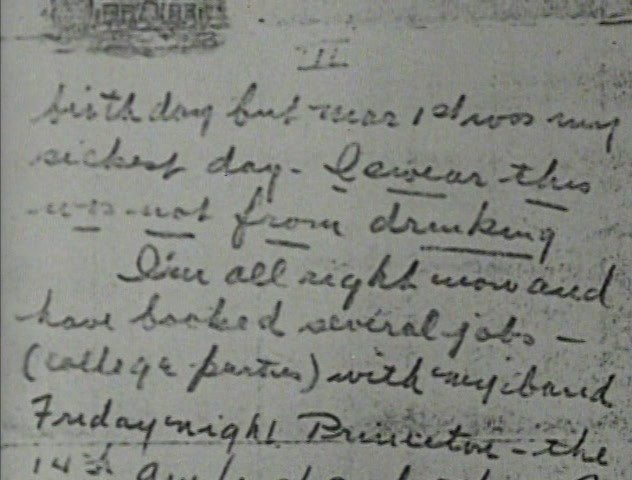 II
birthday but Mar 1st was my
sickest day - I swear this
was not from drinking
I'm all right now and
have booked several jobs -
(college parties) with my band
Friday night Princeton - the
14th